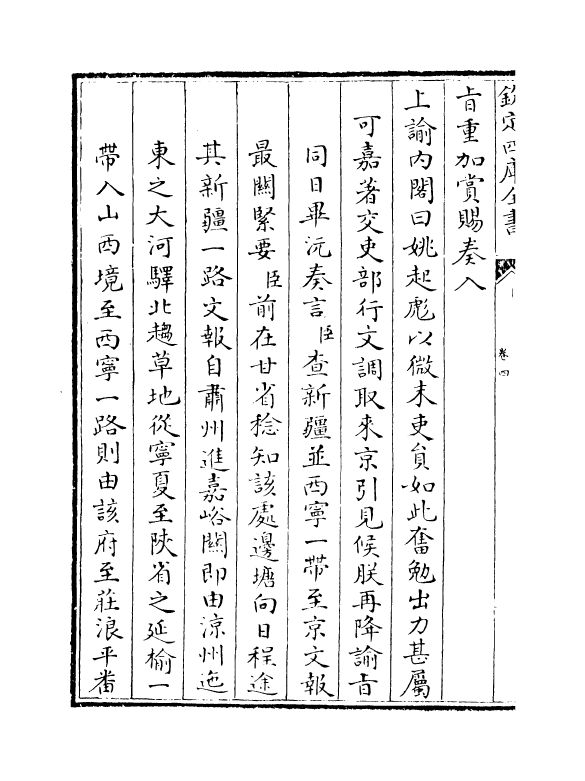 欽定四庫全書
卷四
旨重加賞賜奏入
上諭内閣曰姚起彪以微末吏員如此奮勉出力甚屬
可嘉著交吏部行文調取來京引見候朕再降諭旨
同日畢沅奏言臣查新疆並西寧一帶至京文報
最關緊要臣前在甘省稔知該處邊塘向日程途
其新疆一路文報自肅州進嘉峪關即由涼州迤
東之大河驛北趨草地從寧夏至陜省之延榆一
帶入山西境至西寧一路則由該府至莊浪平番